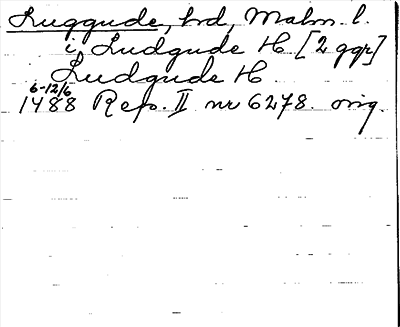 Luggude, hd, Malm. l.
i Ludgude H [2 ggr]
Ludgude H
6-12/6
1488 Rep. II nr 6278. orig.